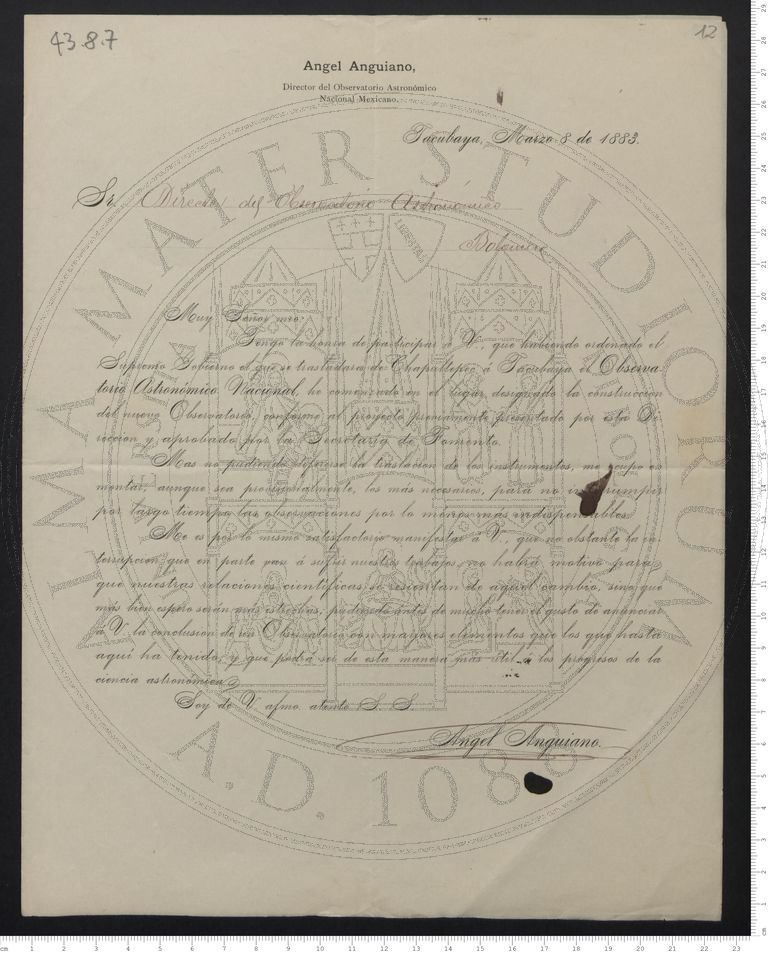 43.8.7
12
Angel Anguiano,
Director del Observatorio Astronómico
Nacional Mexicano.
Tacubaya, Marzo 8 de 1883.
Sr. Director del Observatorio Astronómico
Muy Señor mio:
Tengo la honra de participar á V., que habiendo ordenado el
Supremo Gobierno el que se trasladara de Chapultepec á Tacubaya el Observa-
torio Astronómico Nacional, he comenzado en el lugar designado la construccion
del nuevo Observatorio, conforme al proyecto previamente presentado por esta Di-
reccion y aprobado por la Secretaría de Fomento.
Mas no pudiendo diferirse la traslacion de los instrumentos, me ocupo en
montar, aunque sea provisionalmente, los más necesarios, para no interrumpir
por largo tiempo las observaciones por lo menos más indispensables.
Me es por lo mismo satisfactorio manifestar á V., que no obstante la in-
terrupcion que en parte van á sufrir nuestros trabajos, no habrá motivo para
que nuestras relaciones científicas se resientan de aquel cambio, sino que
más bien espero serán más estrechas, pudiendo antes de mucho tener el gusto de anunciar
á V. la conclusion de un Observatorio con mayores elementos que los que hasta
aquí ha tenido, y que podrá ser de esta manera más útil á los progresos de la
ciencia astronómica.
Soy de V. afmo. atento S. S.
Angel Anguiano.
ALMA MATER STUDIORUM
A.D. 1088